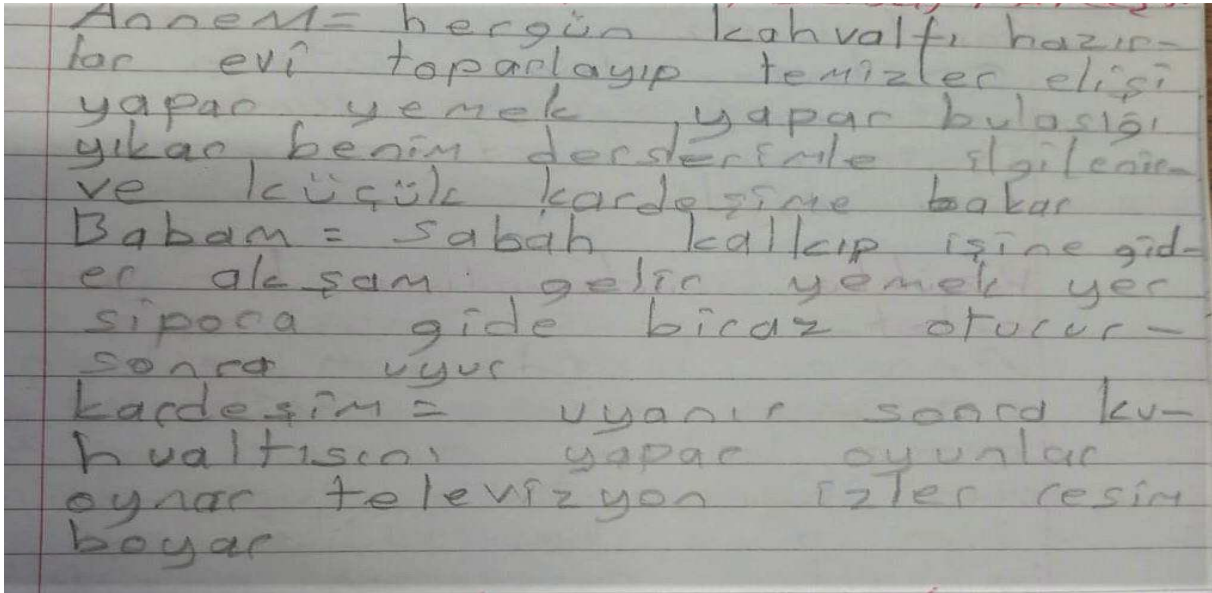 Annem= hergün kahvaltı hazır-
lar evi toparlayıp temizler elişi
yapar yemek yapar bulaşığı
yıkar, benim derslerimle ilgilenir
ve küçük kardeşime bakar
Babam = sabah kalkıp işine gid-
er akşam gelir yemek yer
sipora gide biraz oturur-
sonra uyur
kardeşim= uyanır sonra ka-
hvaltısını yapar oyunlar
oynar televizyon izler resim
boyar